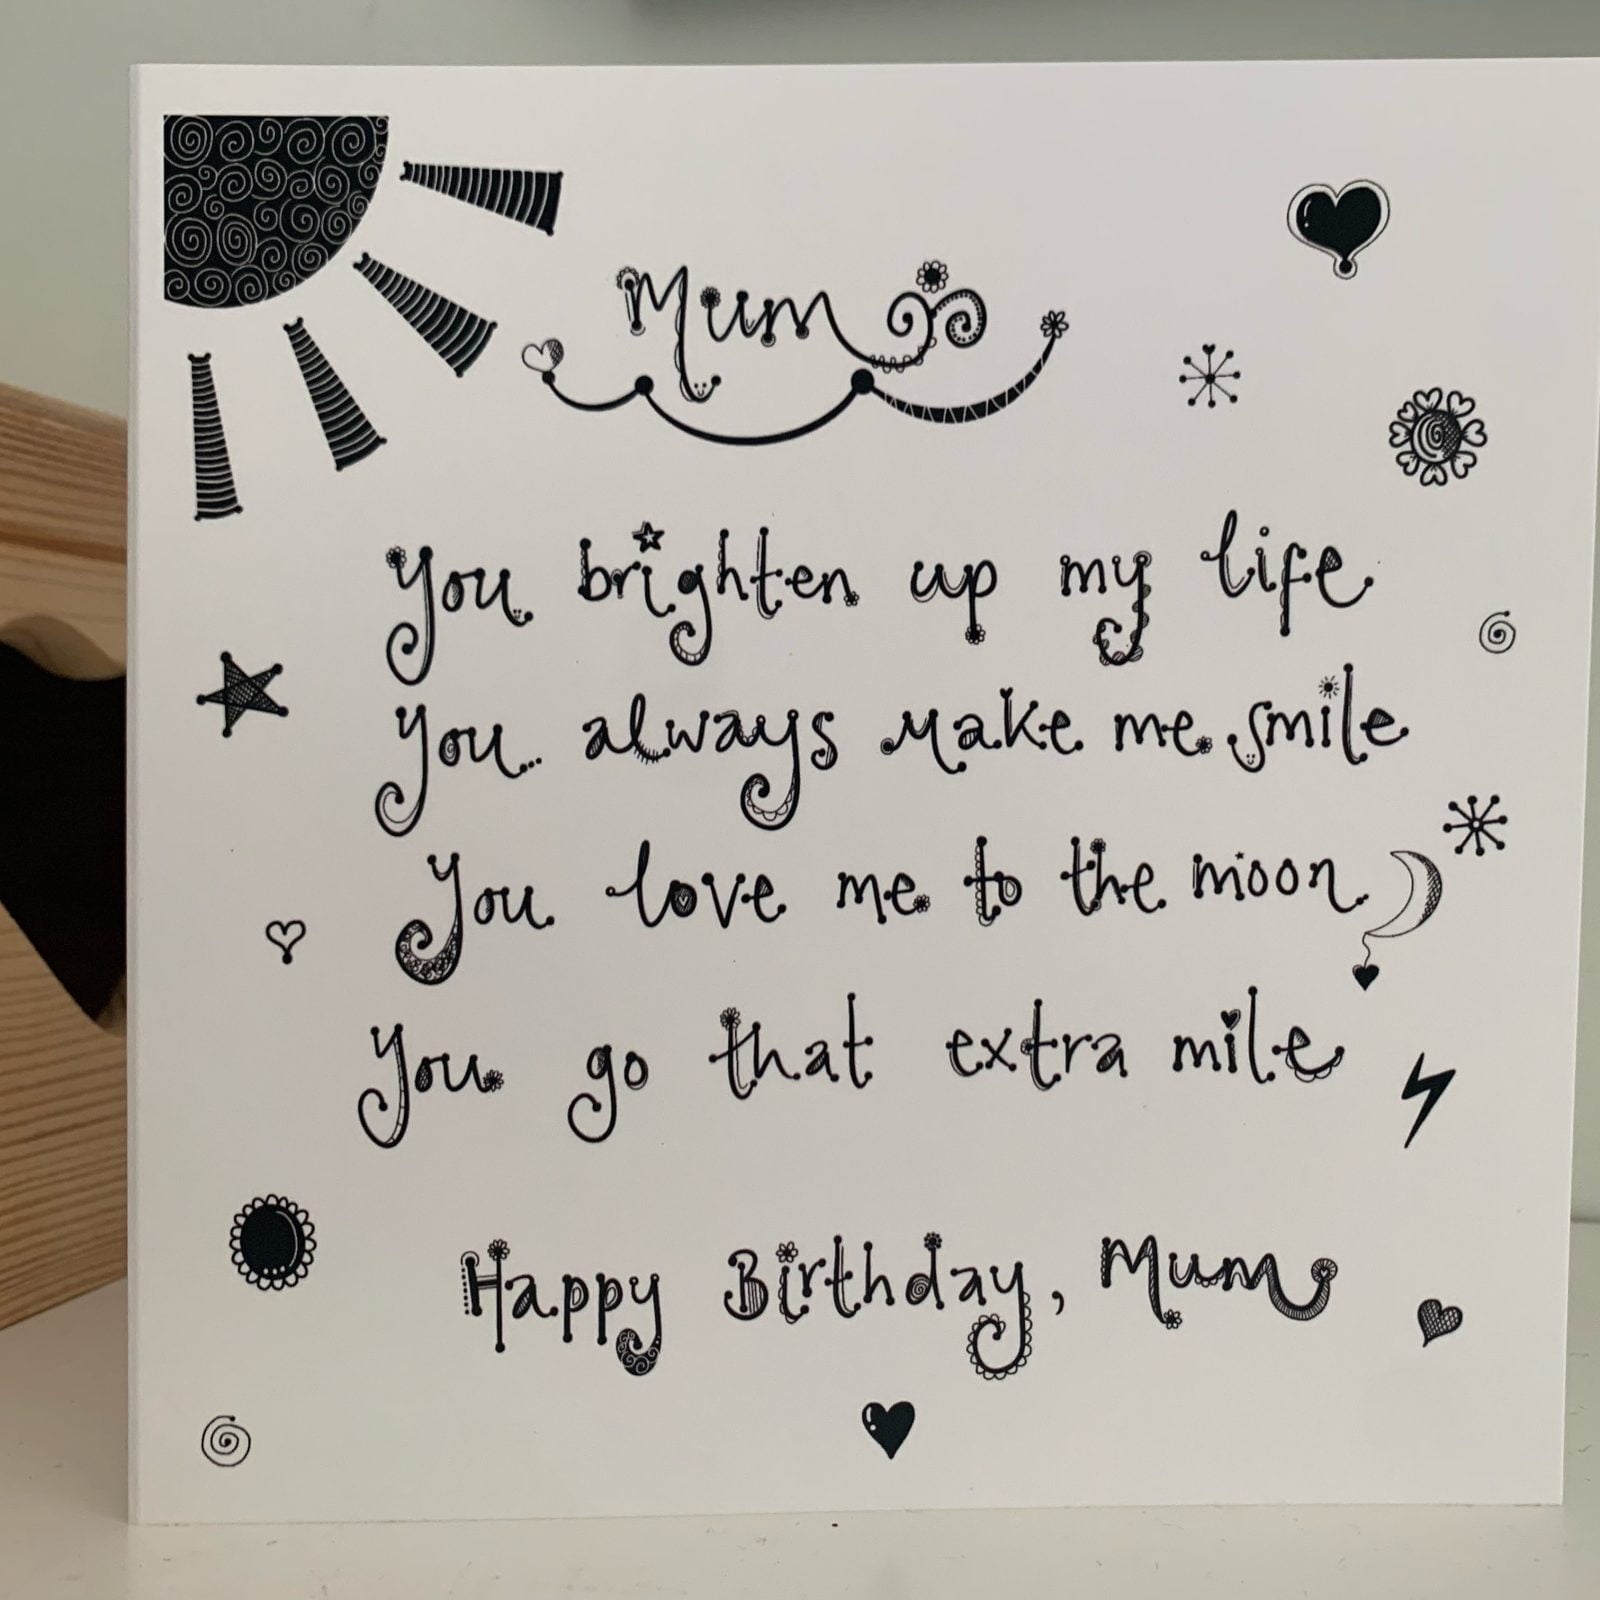 Mum
You brighten up my life
You always make me smile
You love me to the moon
You go that extra mile
Happy Birthday, Mum